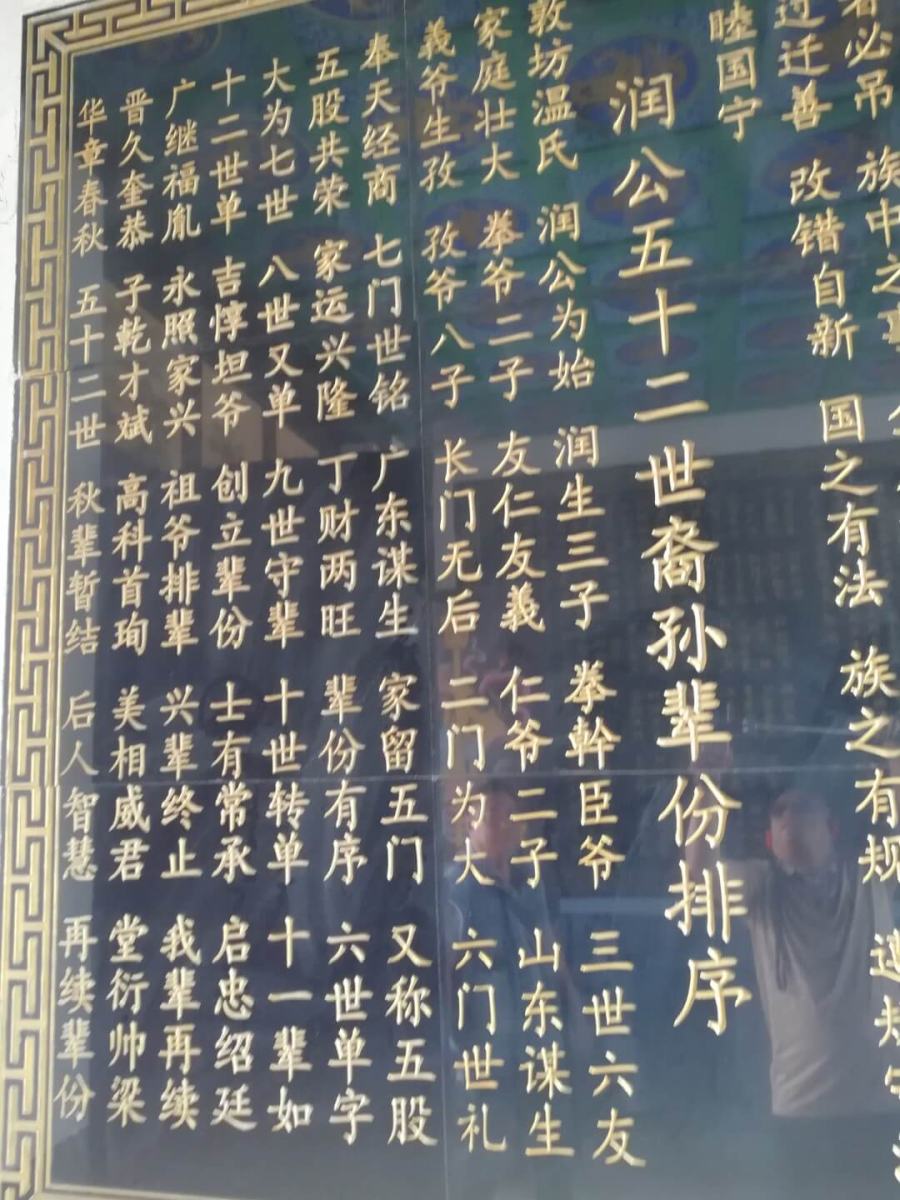 者必吊 族中之事
过迁善 改错自新 国之有法 族之有规
睦国宁
润公五十二世裔孙辈份排序
敦坊温氏 润公为始 润生三子 拳幹臣爷 三世六友
家庭壮大 拳爷二子 友仁友義 仁爷二子 山东谋生
義爷生孜 孜爷八子 长门无后 二门为大 六门世礼
奉天经商 七门世铭 广东谋生 家留五门 又称五股
五股共荣 家运兴隆 丁财两旺 辈份有序 六世单字
大为七世 八世又单 九世守辈 十世转单 十一辈如
十二世单 吉惇坦爷 创立辈份 士有常承 启忠绍廷
广继福胤 永照家兴 祖爷排辈 兴辈终止 我辈再续
晋久奎恭 子乾才斌 高科首珣 美相威君 堂衍帅梁
华章春秋 五十二世 秋辈暂结 后人智慧 再续辈份